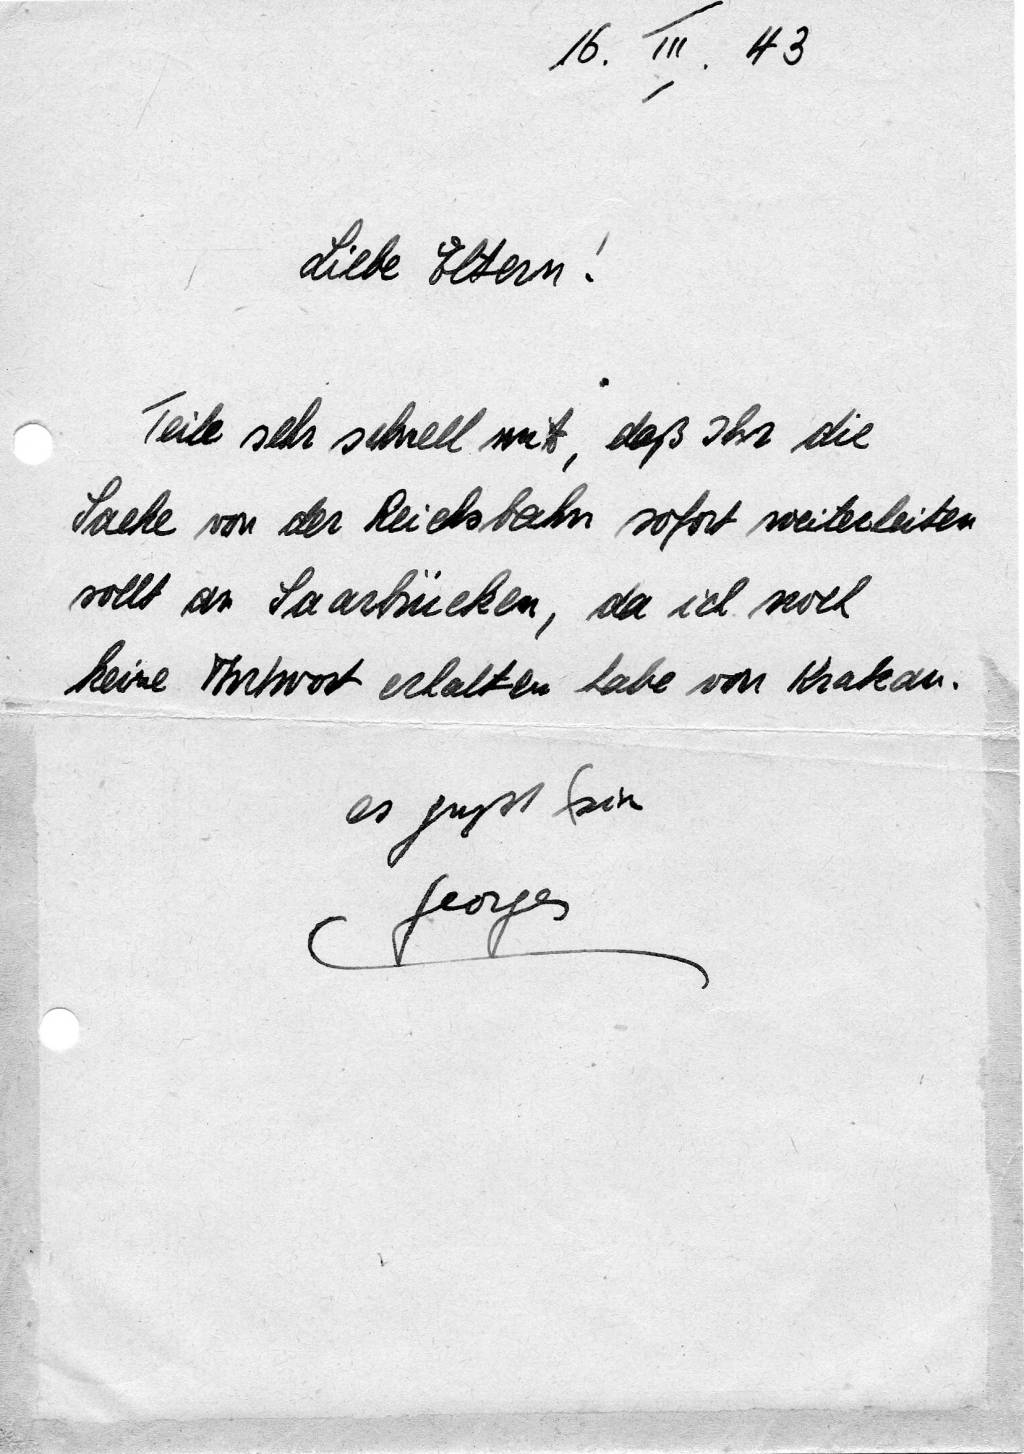 16. III. 43
Liebe Eltern!
Teile sehr schnell mit, daß Ihr die
Sache von der Reichsbahn sofort weiterleiten
sollt an Saarbrücken, da ich noch
keine Antwort erhalten habe von Krakau.
es grüßt
Georges